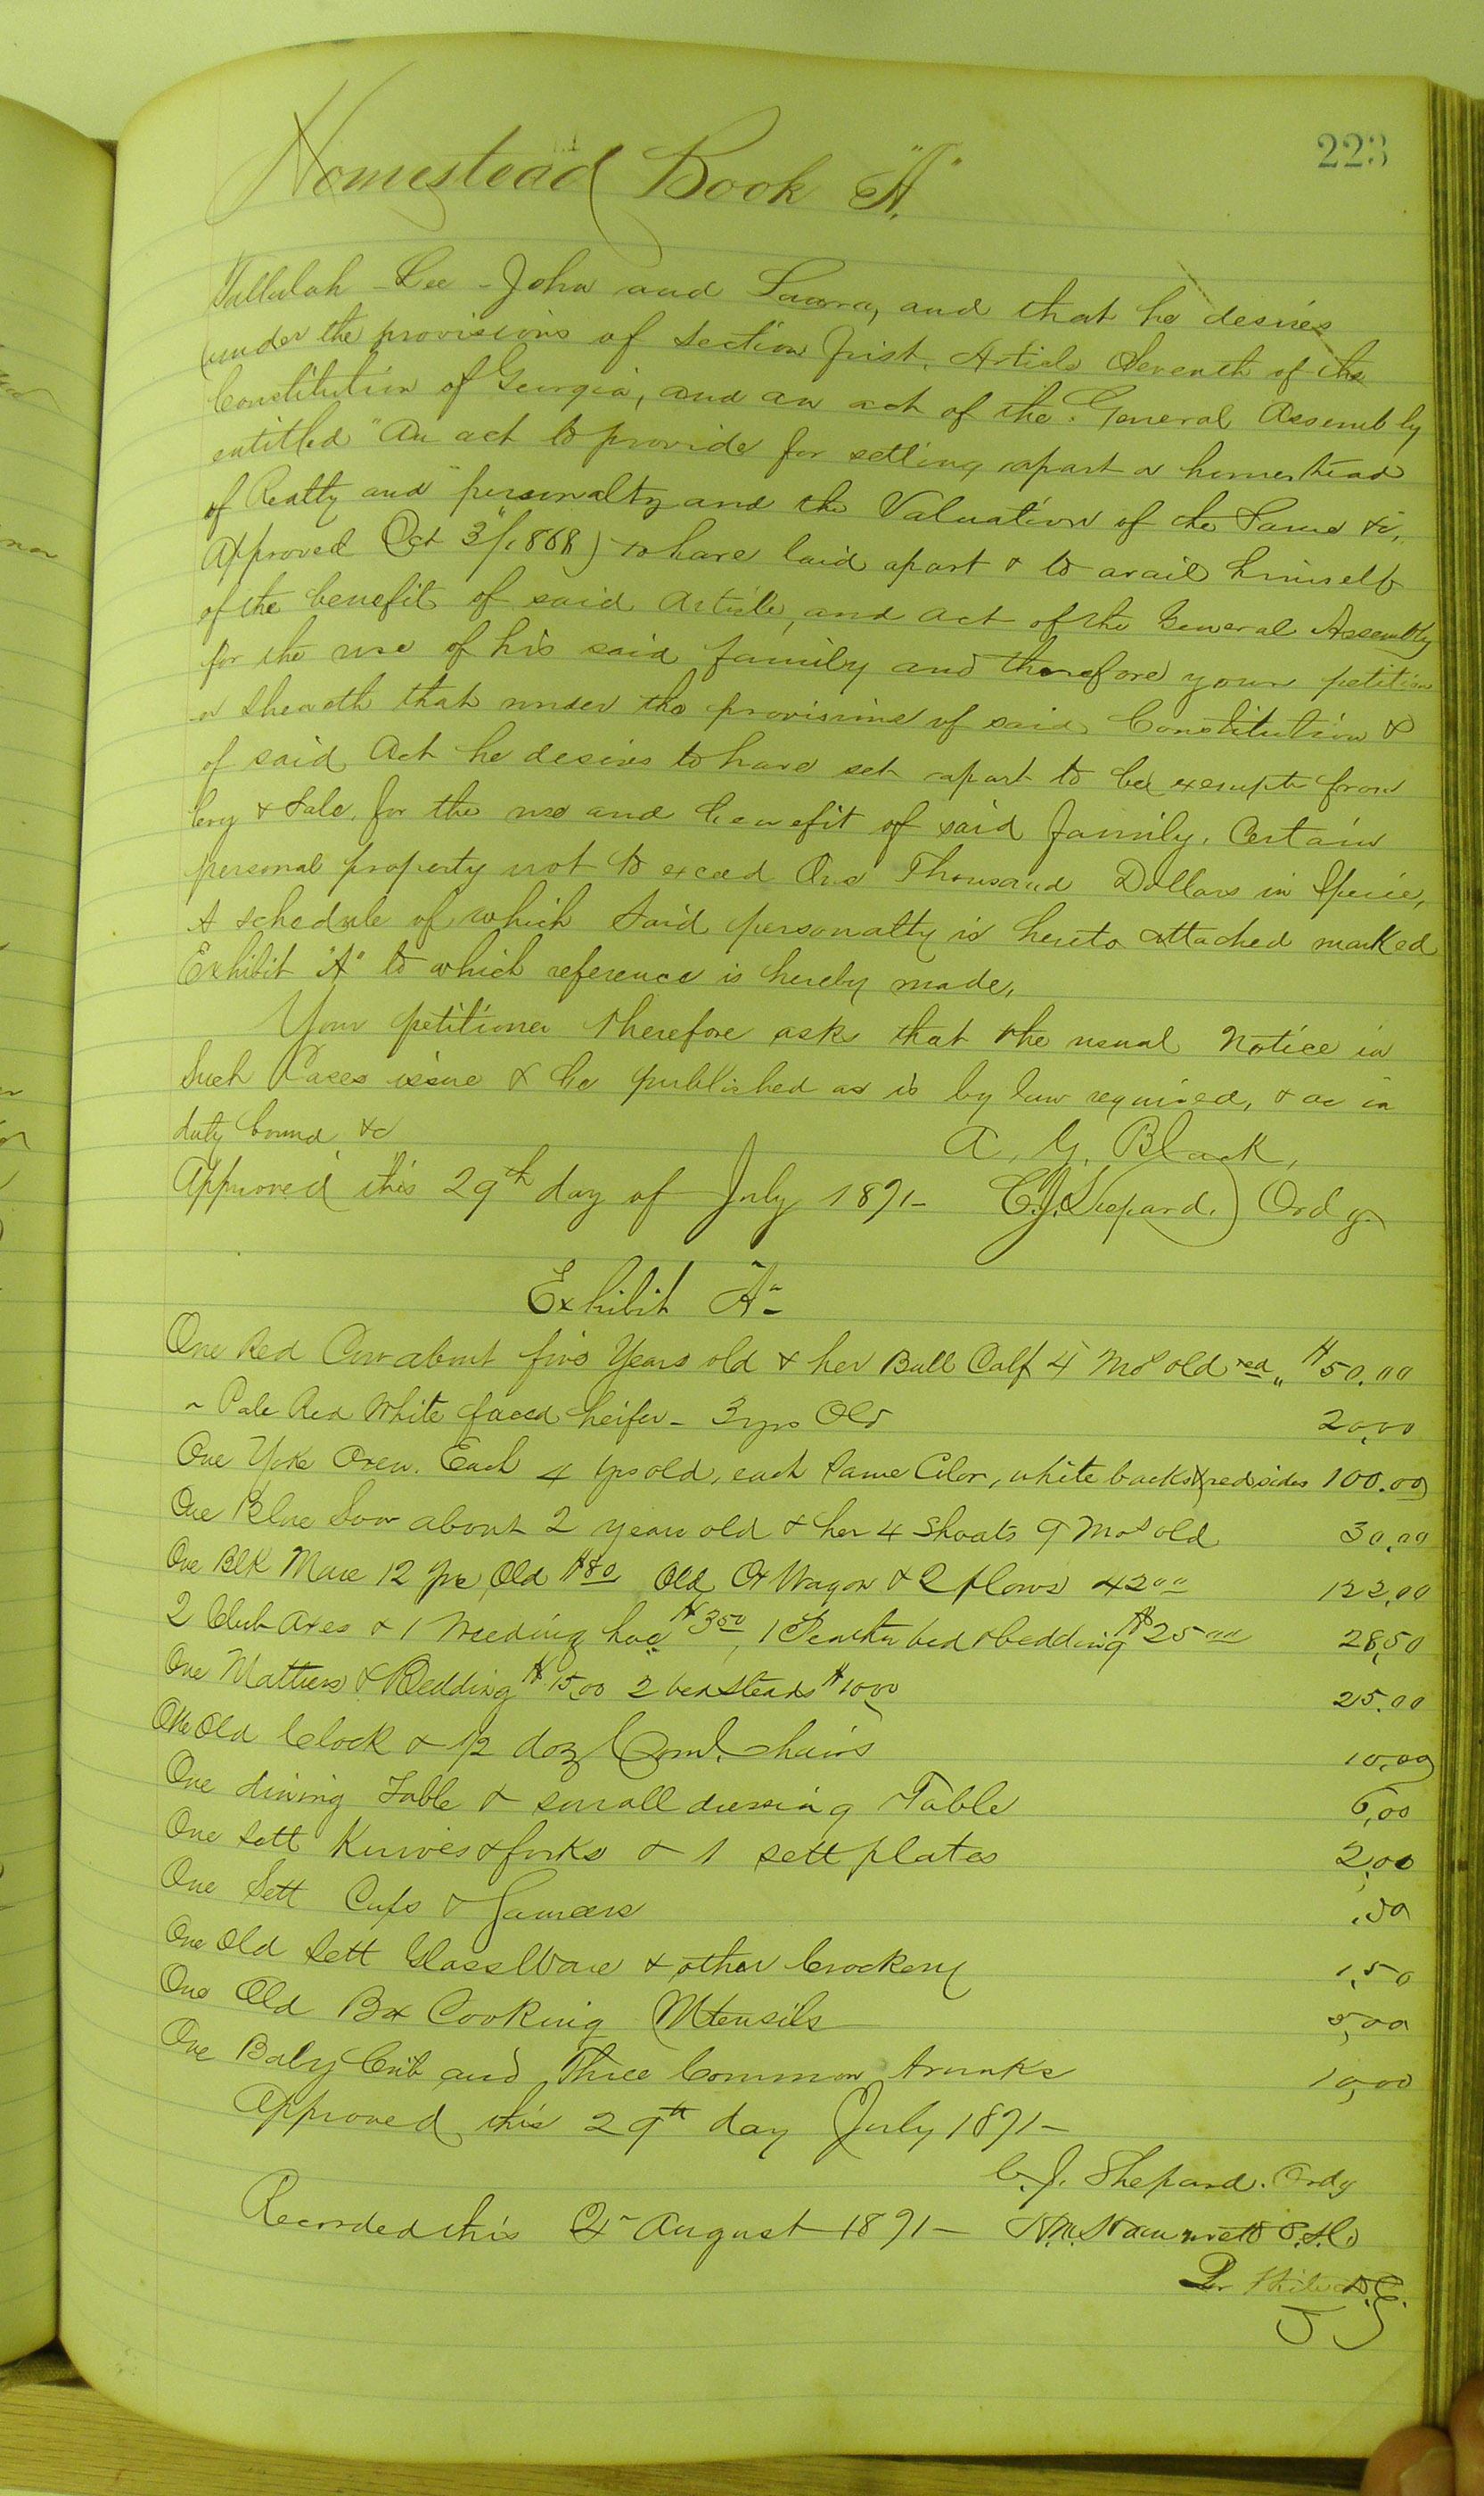 223
Homestead Book "A."
Tallulah - Lee - John and Laura, and that he desires
(under the provisions of Section first, Article Seventh of the
Constitution of Georgia, and an act of the General Assembly
entitled "An act to provide for setting apart a homestead
of Realty and personalty and the Valuation of the Same &c,
approved Oct 3d/1868) to have laid apart & to avail himself
of the benefit of said article, and act of the General Assembly
for the use of his said family and therefore your petition
er sheweth that under the provisions of said Constitution &
of said Act he desires to have set apart to be exempt from
levy & Sale, for the use and benefit of said family, Certain
personal property not to exceed One Thousand Dollars in Specie,
A schedule of which Said personalty is hereto attached marked
Exhibit "A" to which reference is hereby made,
Your petitioner therefore asks that the usual Notice in
Such Cases issue & be published as is by law required, & as in
duty bound &c
A. G. Black,
Approved this 29th day of July 1891- C. J. Shepard. Ordy
Exhibit "A"
One Red Cow about five Years old & her Bull Calf 4 Mos old red " $50.00
" Pale Red White faced heifer - 3 yrs Old 20,00
One Yoke Oxen. Each 4 yrs old, each Same Color, white backs & red sides 100.00
One Blue Sow about 2 years old & her 4 Shoats 9 Mos old 30,00
One Blk Mare 12 Yrs Old $80 Old Ox Wagon & 2 plows 42 00 122,00
2 Club Axes & 1 Weeding hoe $3 50, 1 Feather bed & bedding $25 00 28,50
One Mattress & Bedding $15,00 2 bedsteads $10 00 25.00
One Old Clock & 1/2 doz Com. Chairs 10,00
One dining Table & small dressing Table 6,00
One Sett Knives & forks & 1 sett plates 2,00
One Sett Cups & Saucers .50
One Old Sett GlassWare & other Crockery 1,50
One Old Box Cooking Utensils 5,00
One Baby Crib and Three Common trunks 10,00
Approved this 29th day July 1891-
C. J. Shepard. Ordy
Recorded this August 1891- H. M. Hammett
Per D.C.